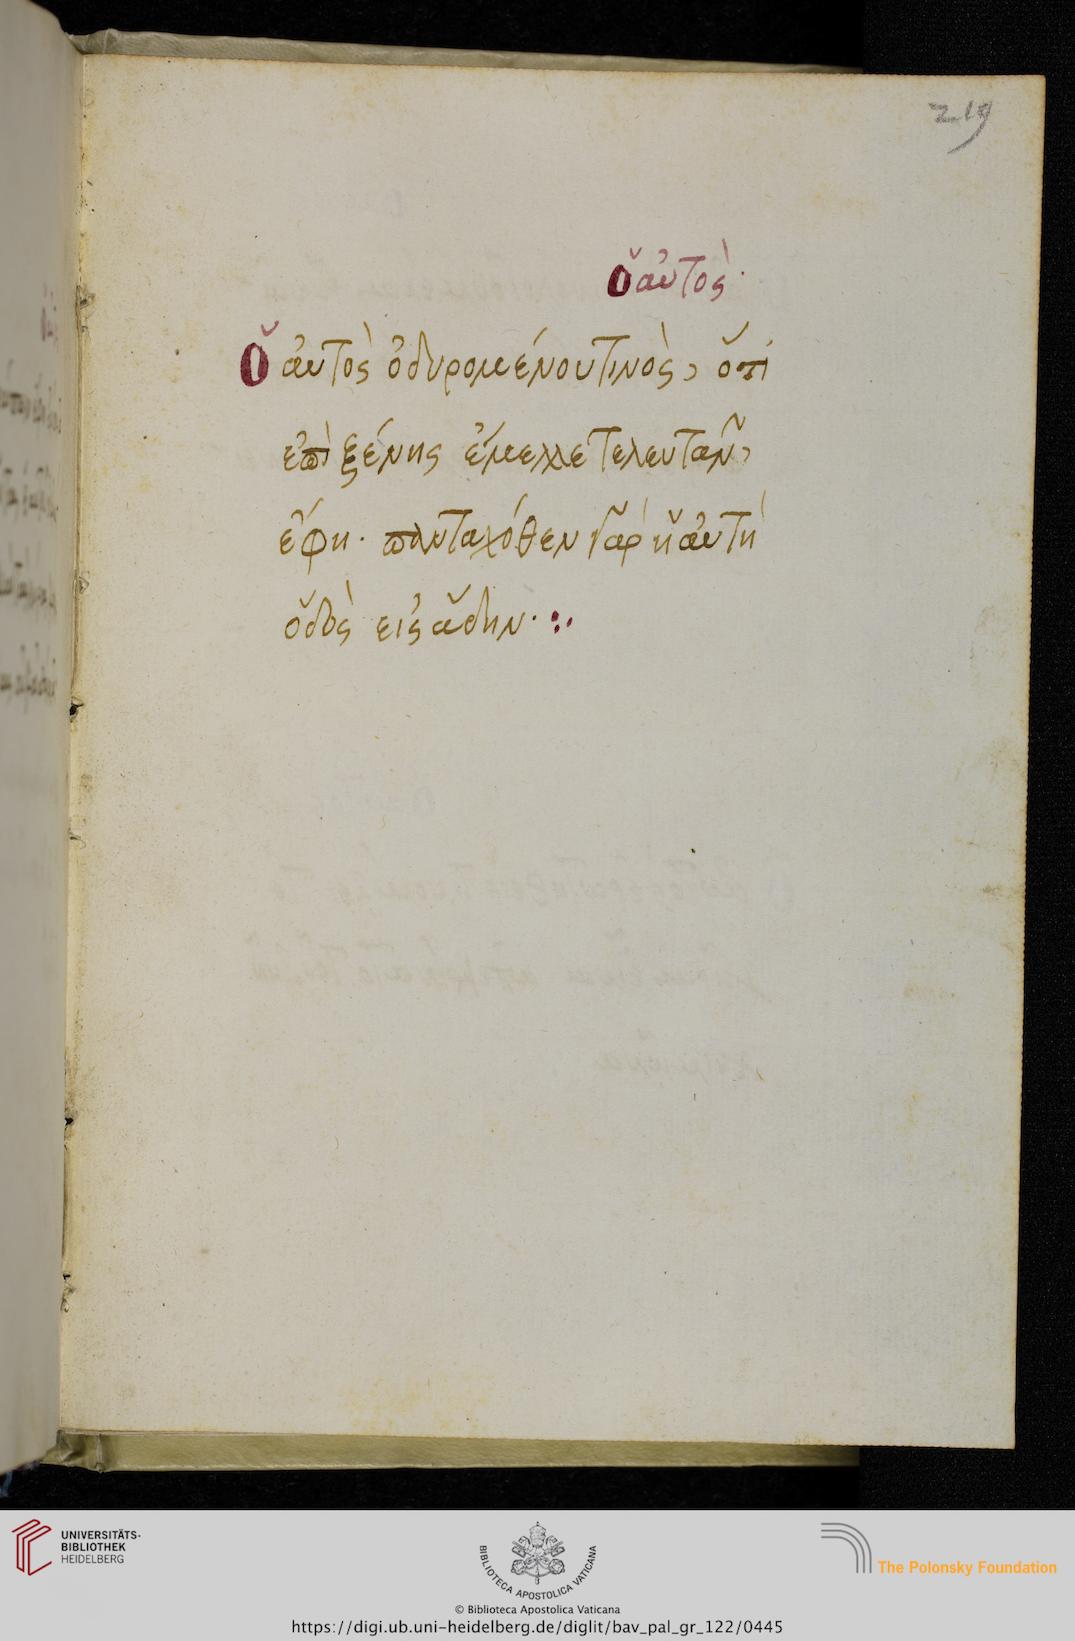 219
Ὁ αὐτὸς·
Ὁ αὐτὸς ὀδυρομένου τινὸς, ὅτι
ἐπὶ ξένης ἔμελλε τελευτᾶν,
ἔφη· πανταχόθεν γὰρ ἡ αὐτὴ
ὁδὸς εἰς ἅδην· :.
UNIVERSITÄTS-
BIBLIOTHEK
HEIDELBERG
BIBLIOTECA APOSTOLICA VATICANA
The Polonsky Foundation
© Biblioteca Apostolica Vaticana
https://digi.ub.uni-heidelberg.de/diglit/bav_pal_gr_122/0445